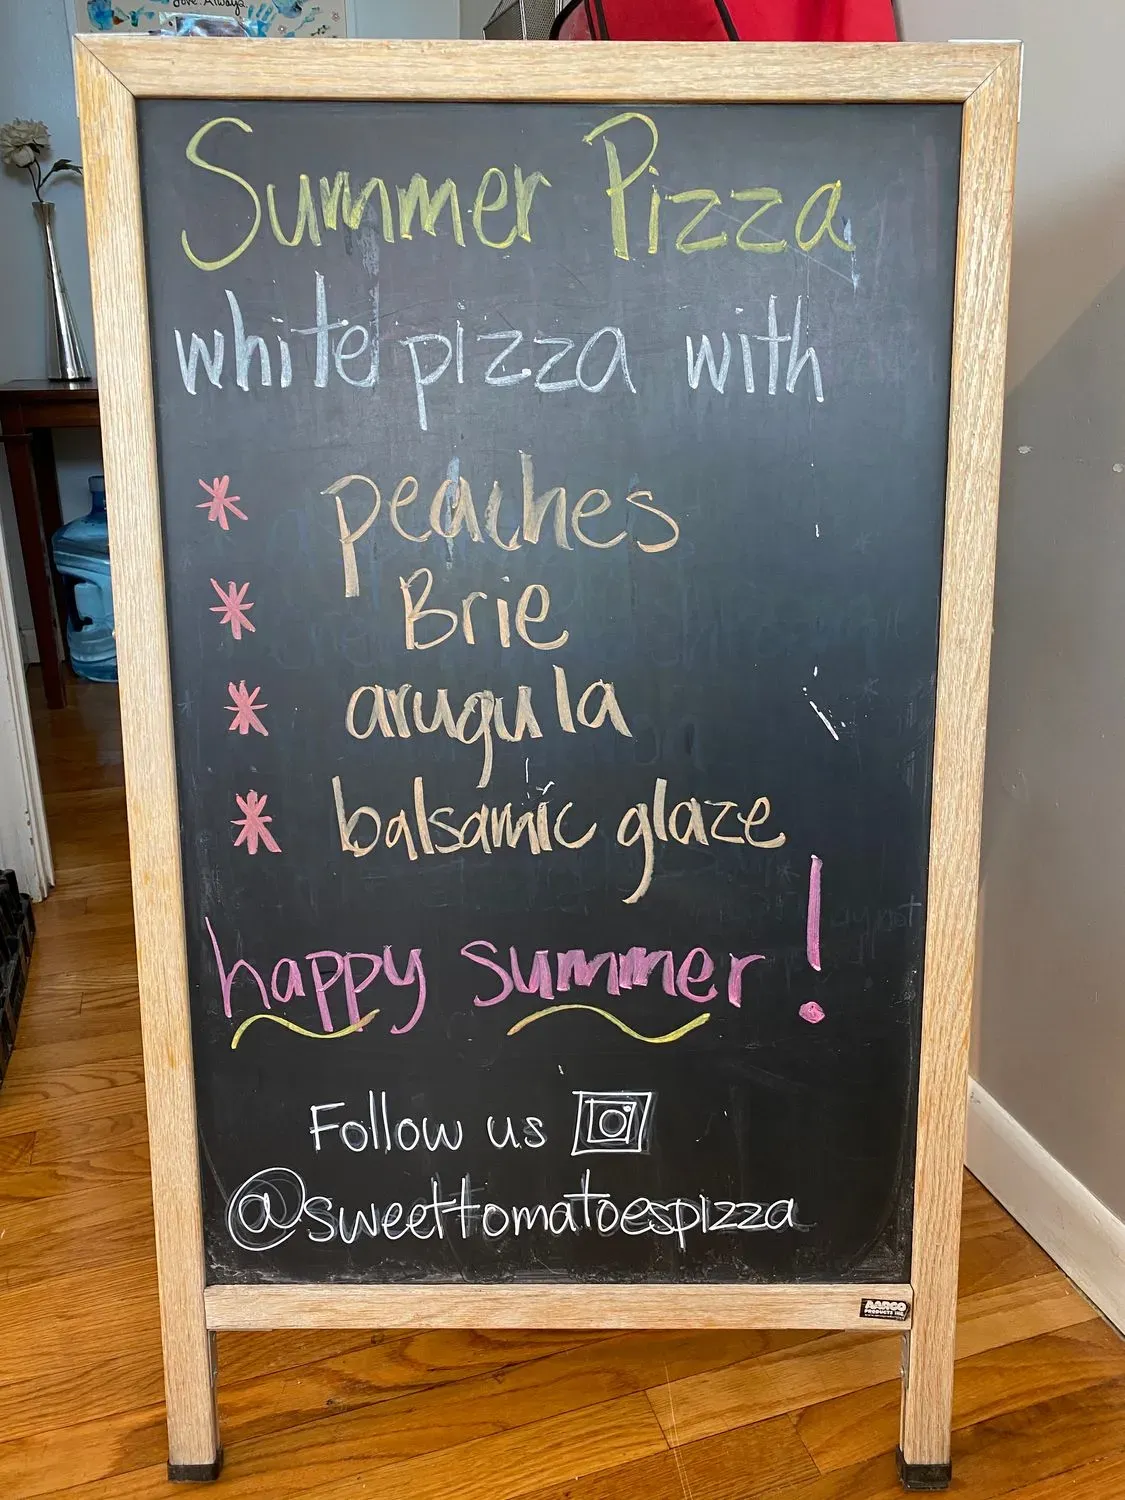 Love, Always
Summer Pizza
white pizza with
* peaches
* Brie
* arugula
* balsamic glaze
happy summer!
Follow us
@sweettomatoespizza
AARCO
PRODUCTS INC.